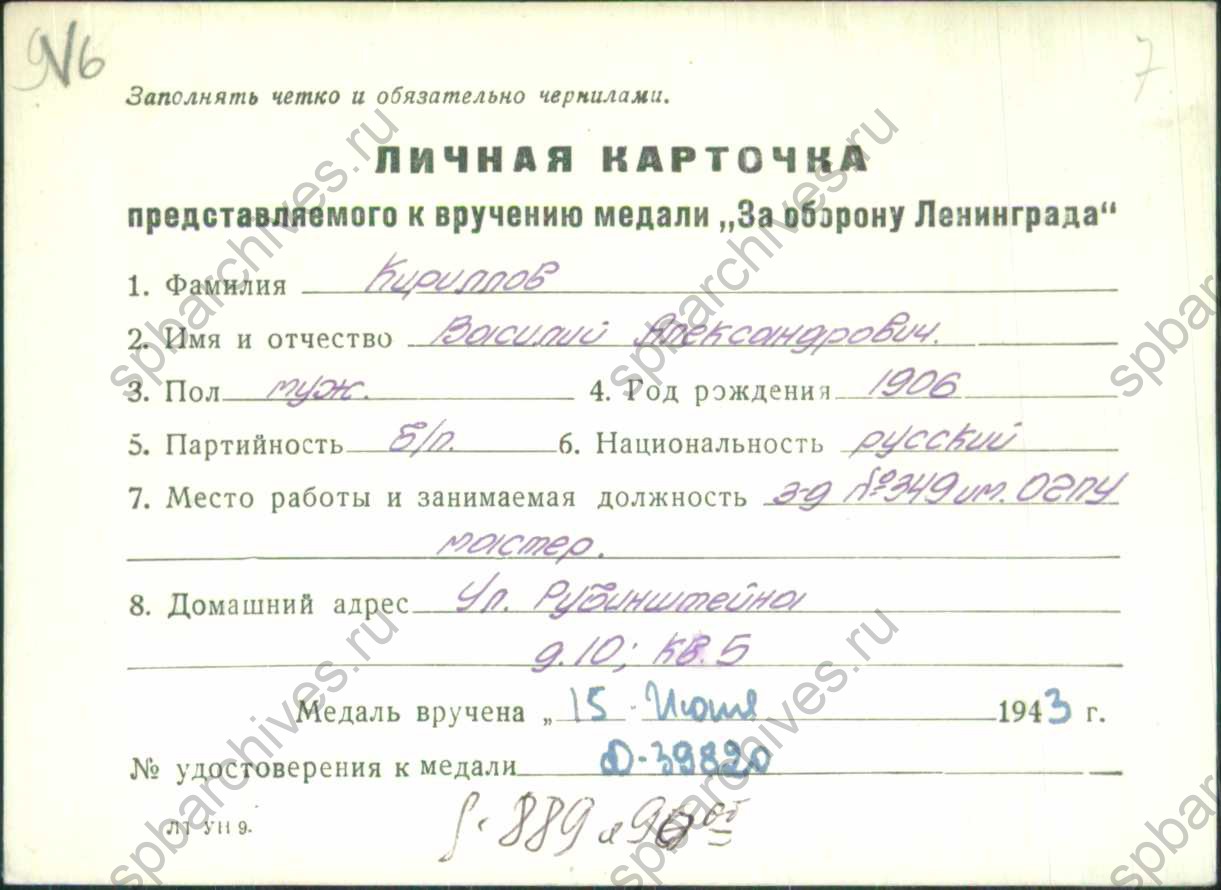 №6
7
Заполнять четко и обязательно чернилами.
ЛИЧНАЯ КАРТОЧКА
представляемого к вручению медали „За оборону Ленинграда“
1. Фамилия Кириллов
2. Имя и отчество Василий Александрович.
3. Пол муж. 4. Год рождения 1906
5. Партийность б/п. 6. Национальность русский
7. Место работы и занимаемая должность з-д №349 им. ОГПУ
мастер.
8. Домашний адрес Ул. Рубинштейна
д.10; кв. 5
Медаль вручена „15 Июня 1943 г.
№ удостоверения к медали Д-39820
889
spbarchives.ru
spbarchives.ru
spbarchives.ru
spbarchives.ru